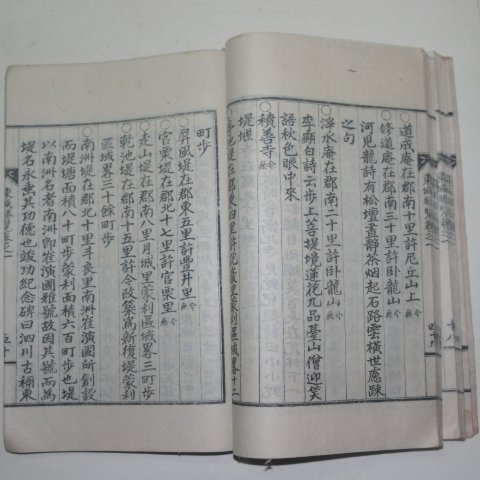 道成庵在郡南十里許尼丘山上
修道庵在郡南三十里許臥龍山
河見龍詩有松壇晝靜茶烟起石路雲橫世慮踈
之句
淨水庵在郡南二十里許臥龍山今無
李顯白詩云步上菩堤境蓮花九品臺山僧迎笑
語秋色眼中來
積善寺今無
堤堰
町步
屛風堤在郡東五里許豊井里今無
官栗堤在郡北十七里許官栗里今無
走山堤在郡南八里月城里蒙利區域畧三町步
乾池堤在郡南十五里許今改築爲新復堤蒙利
區域畧三十餘町步
南洲堤在郡北十里手良里南洲崔演國所創設
而堤塘面積八十町步蒙利面積六百町步也堤
以南洲名者南洲卽崔演國雅號故因其號而爲
堤名永熏其功德也竣功紀念碑曰泗川古稱東
五十